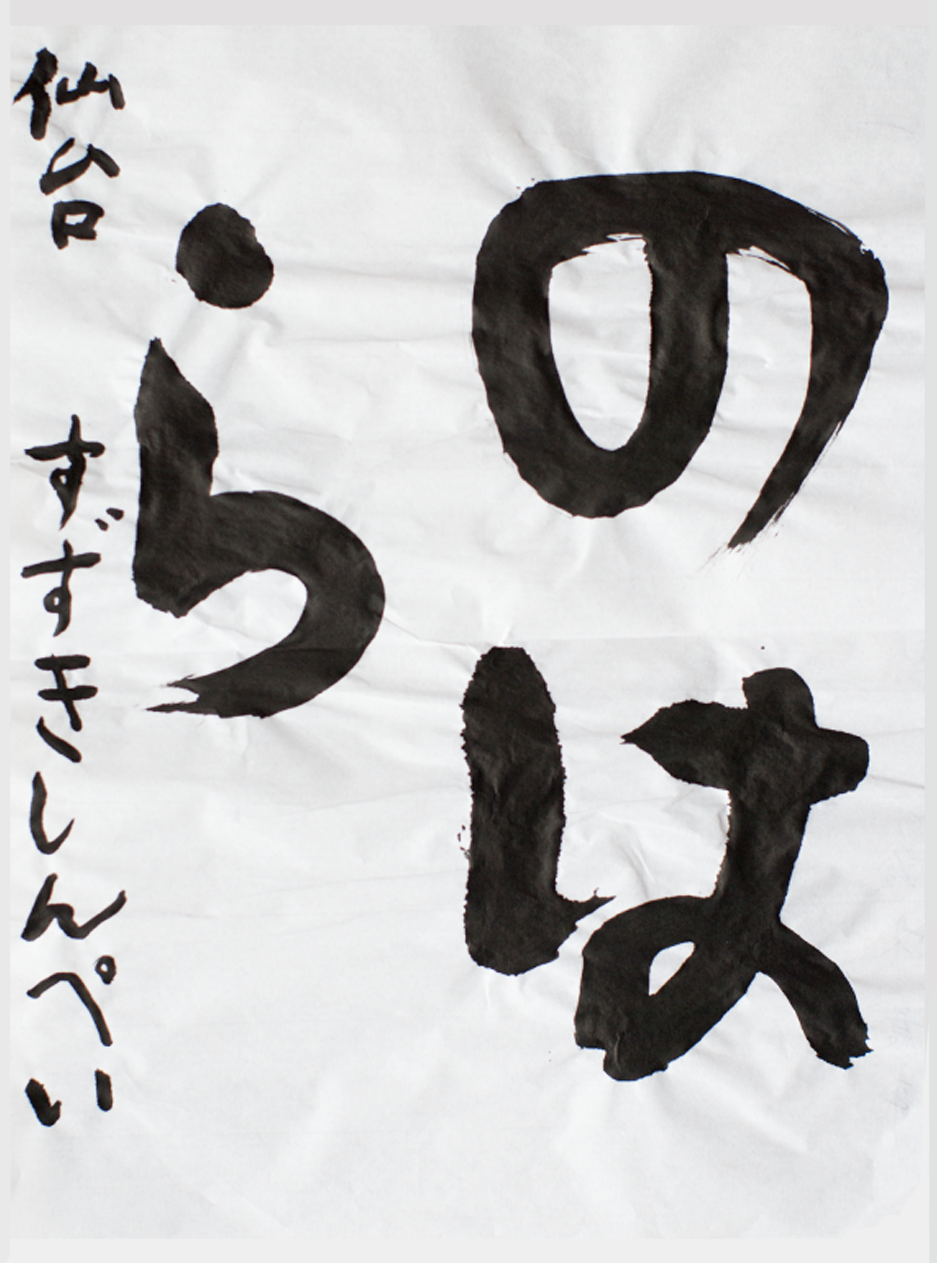 のは
ら
仙台 すずきしんぺい